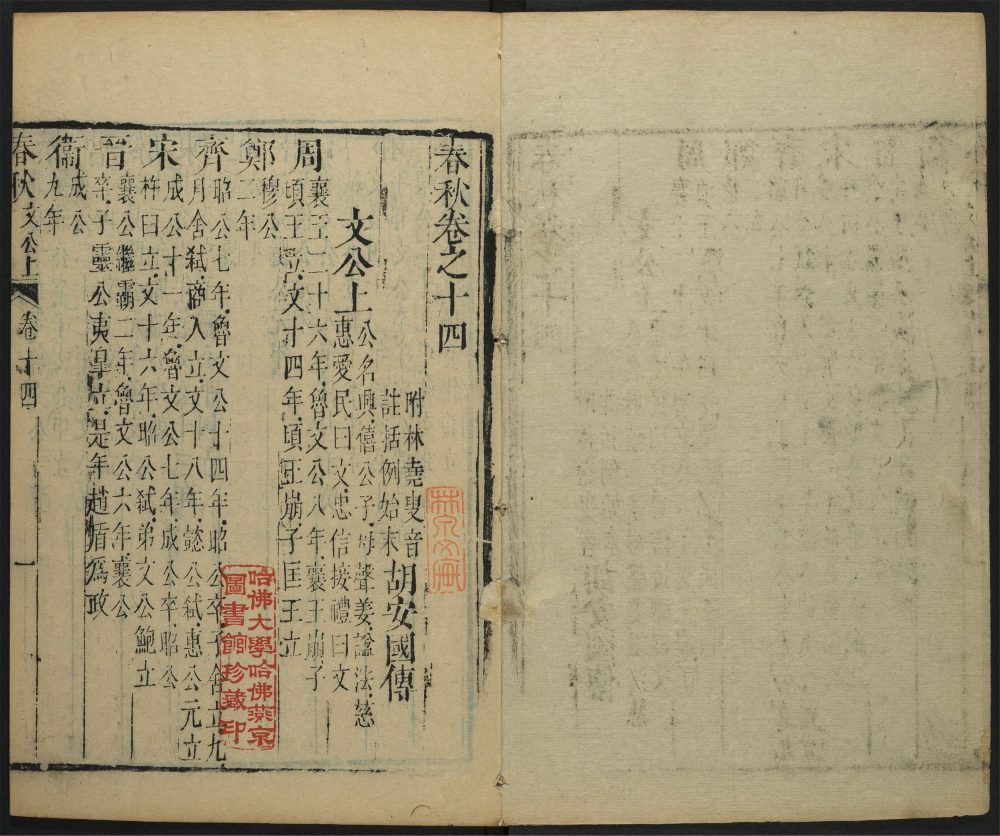 春秋卷之十四
附林堯叟音
註括例始末
胡安國傳
文公上
公名興僖公子母聲姜諡法慈
惠愛民曰文忠信接禮曰文
周
襄王二十六年魯文公八年襄王崩子
頃王立文十四年頃王崩子匡王立
鄭
穆公
二年
齊
昭公七年魯文公十四年昭公卒子舍立九
月舍弒商人立文十八年懿公弒惠公元立
宋
成公十一年魯文公七年成公卒昭公
杵曰立文十六年昭公弒弟文公鮑立
晉
襄公繼霸二年魯文公六年襄公
卒子靈公夷皋立是年趙盾爲政
衞
成公
九年
春秋文公上
卷十四
一
哈佛大學哈佛燕京
圖書館珍藏印